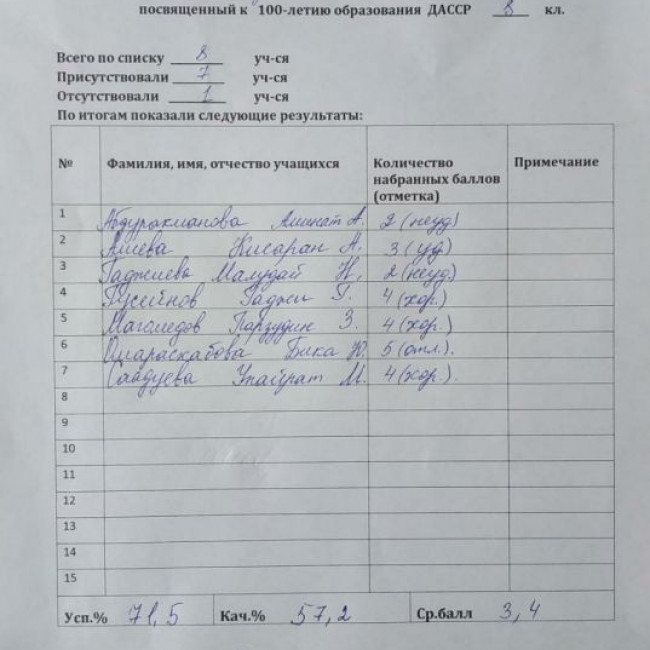 посвященный к 100-летию образования ДАССР 8 кл.
Всего по списку 8 уч-ся
Присутствовали 7 уч-ся
Отсутствовали 1 уч-ся
По итогам показали следующие результаты:
№ Фамилия, имя, отчество учащихся Количество набранных баллов (отметка) Примечание
1 Абдурахманова Аминат А. 2 (неуд)
2 Алиева А. 3 (уд)
3 Гаджиева Н. 2 (неуд)
4 Гусейнов Гаджи Г. 4 (хор.)
5 Магомедов З. 4 (хор.)
6 Бика Ю. 5 (отл.).
7 Саадуева М. 4 (хор.).
8
9
10
11
12
13
14
15
Усп.% 71,5 Кач.% 57,2 Ср.балл 3,4